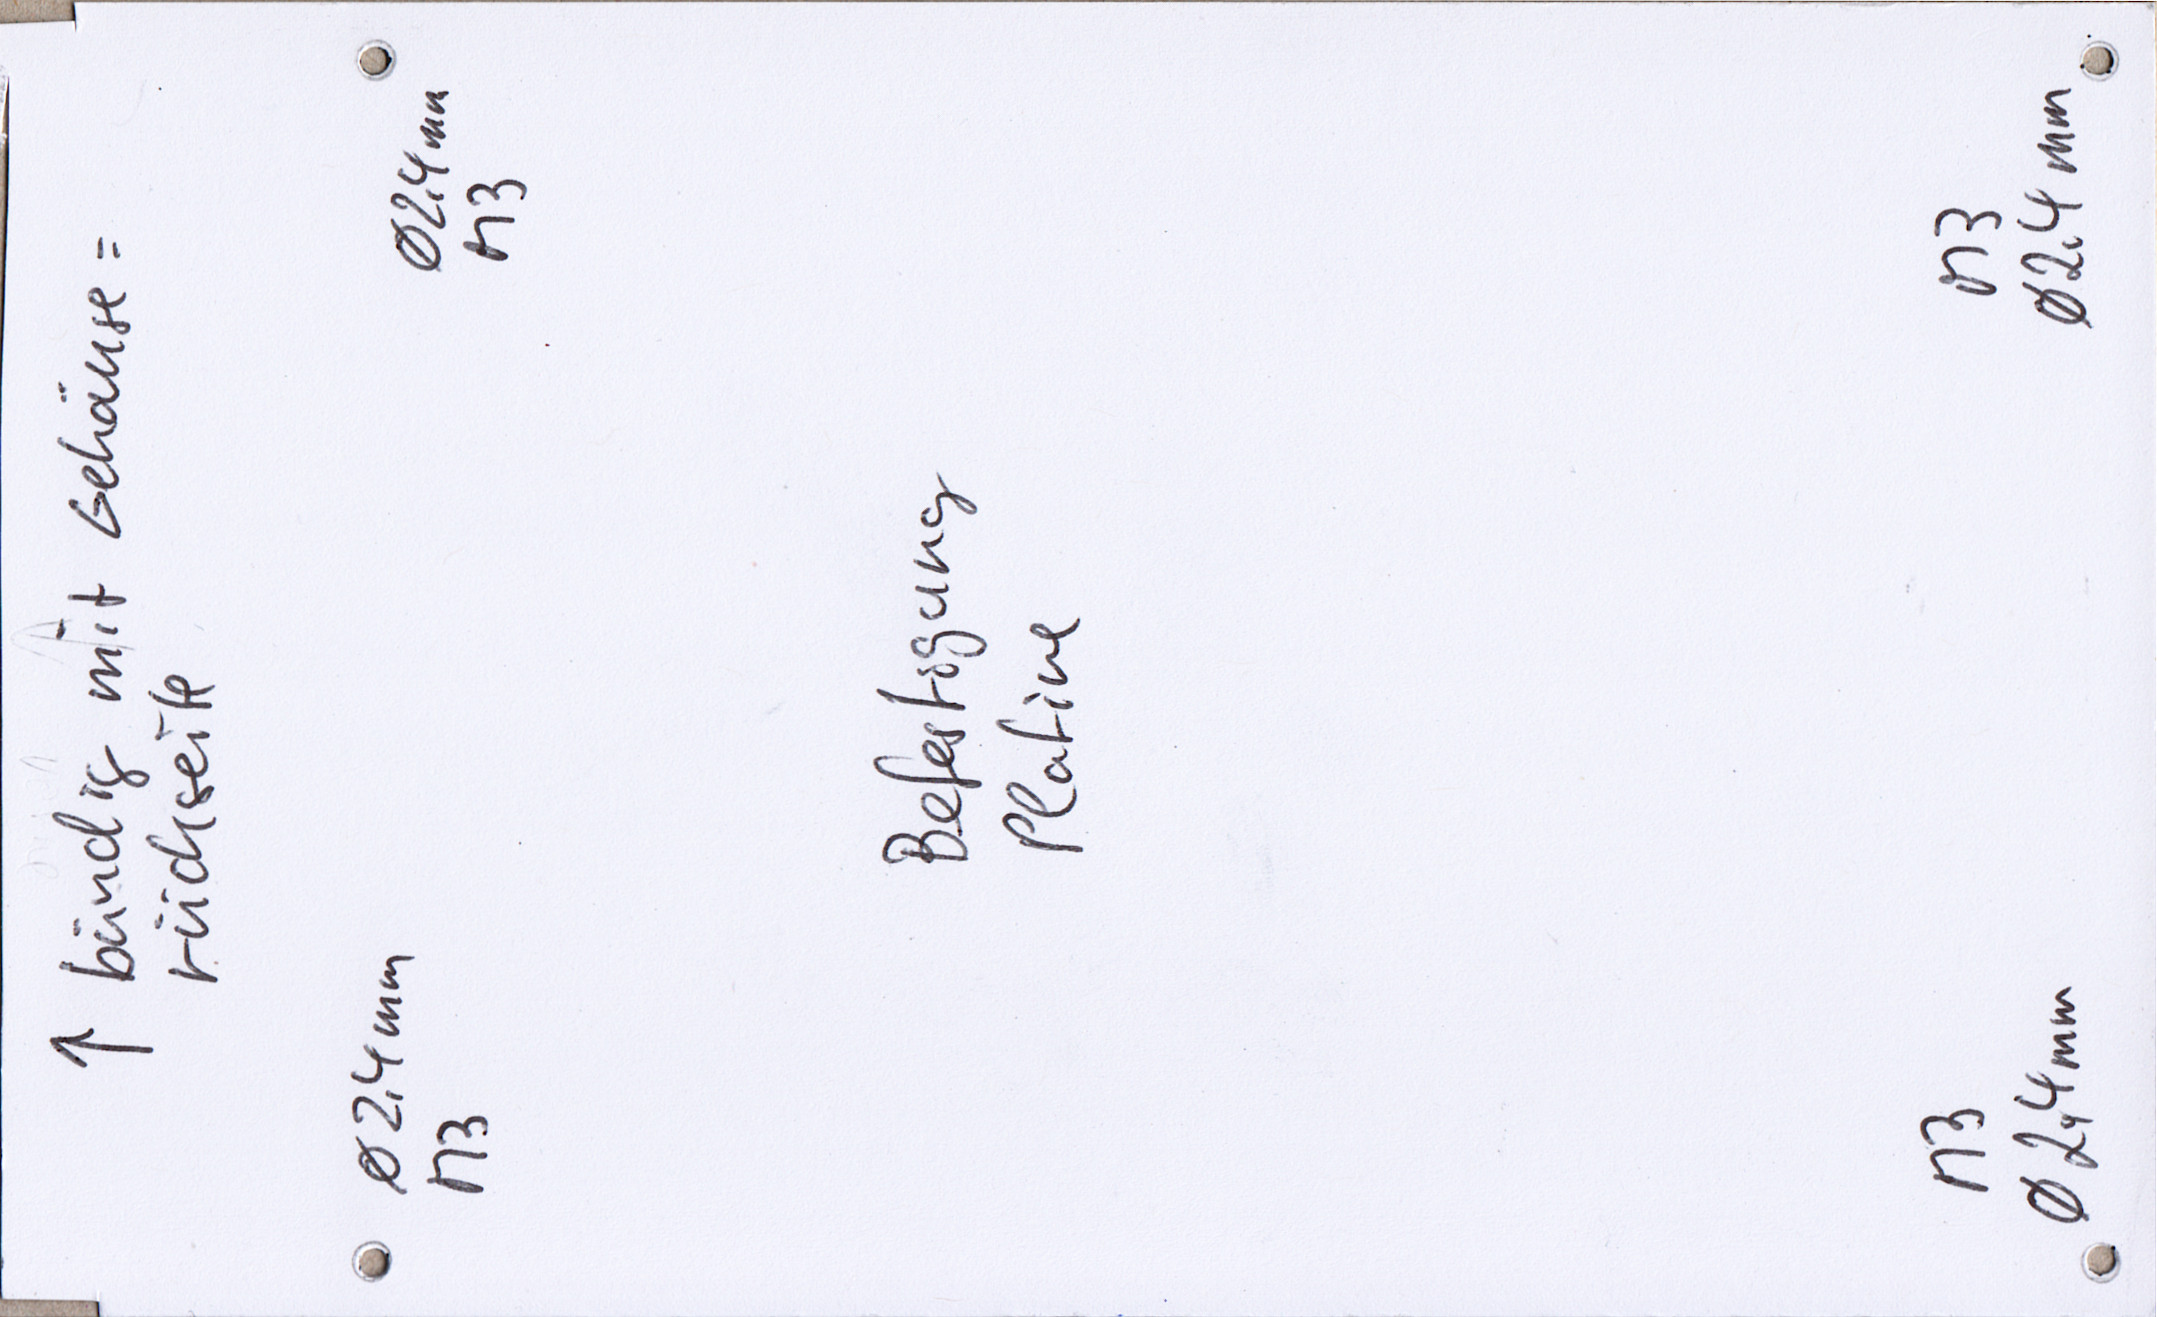 ↑ bündig mit Gehäuse =
rückseite
Ø2.4mm
M3
Ø2.4mm
M3
Befestigung
Platine
M3
Ø2.4mm
M3
Ø2.4mm